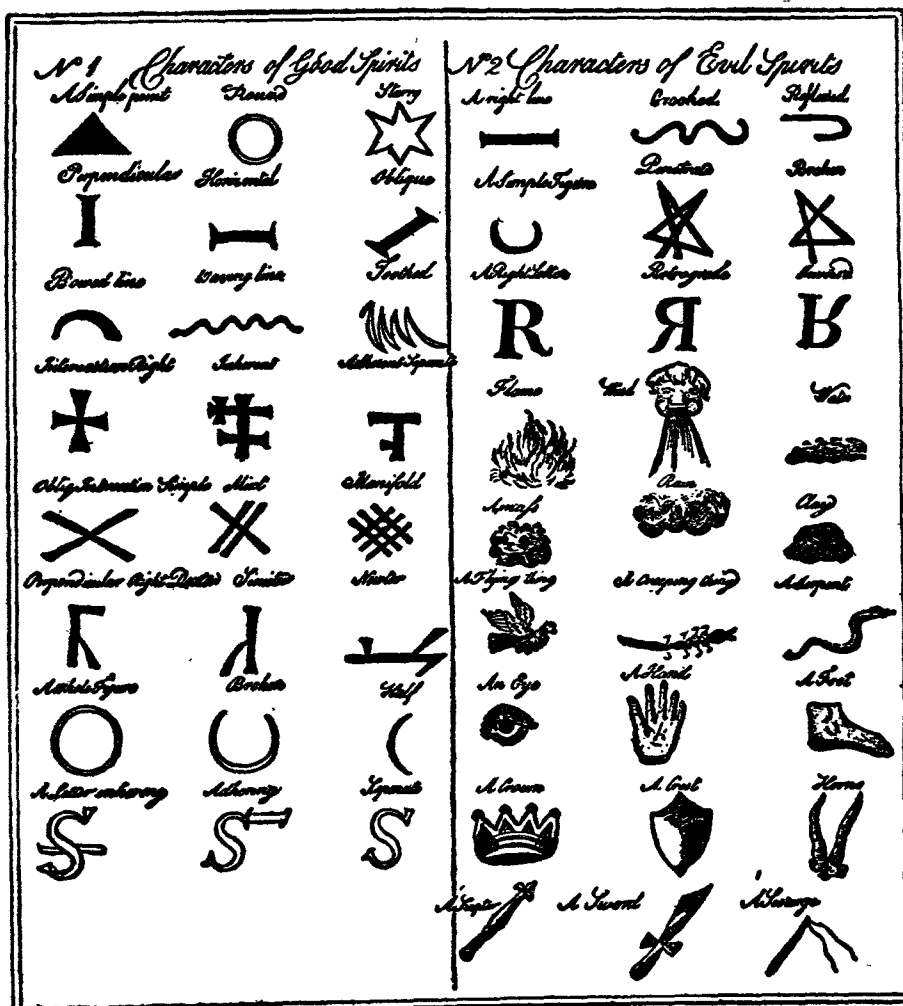 Nº 1 Characters of Good Spirits
A Simple point Round Starry
Perpendicular Horizontal Oblique
Bowed line Waving line Toothed
Intersection Right Inherent Adherent Separate
Obliq Intersection Simple Mixt Manifold
Perpendicular Right Dexter Sinister Neuter
A whole Figure Broken Half
A Letter inhering Adhering Separate
S S S
Nº 2 Characters of Evil Spirits
A right line Crooked Reflexed
A Simple Figure Penetrate Broken
A Right Letter Retrograde Inversed
R R R
Flame Wind Water
A mass Rain Clay
A Flying thing A Creeping thing A Serpent
An Eye A Hand A Foot
A Crown A Crest Horns
A Scepter A Sword A Scourge